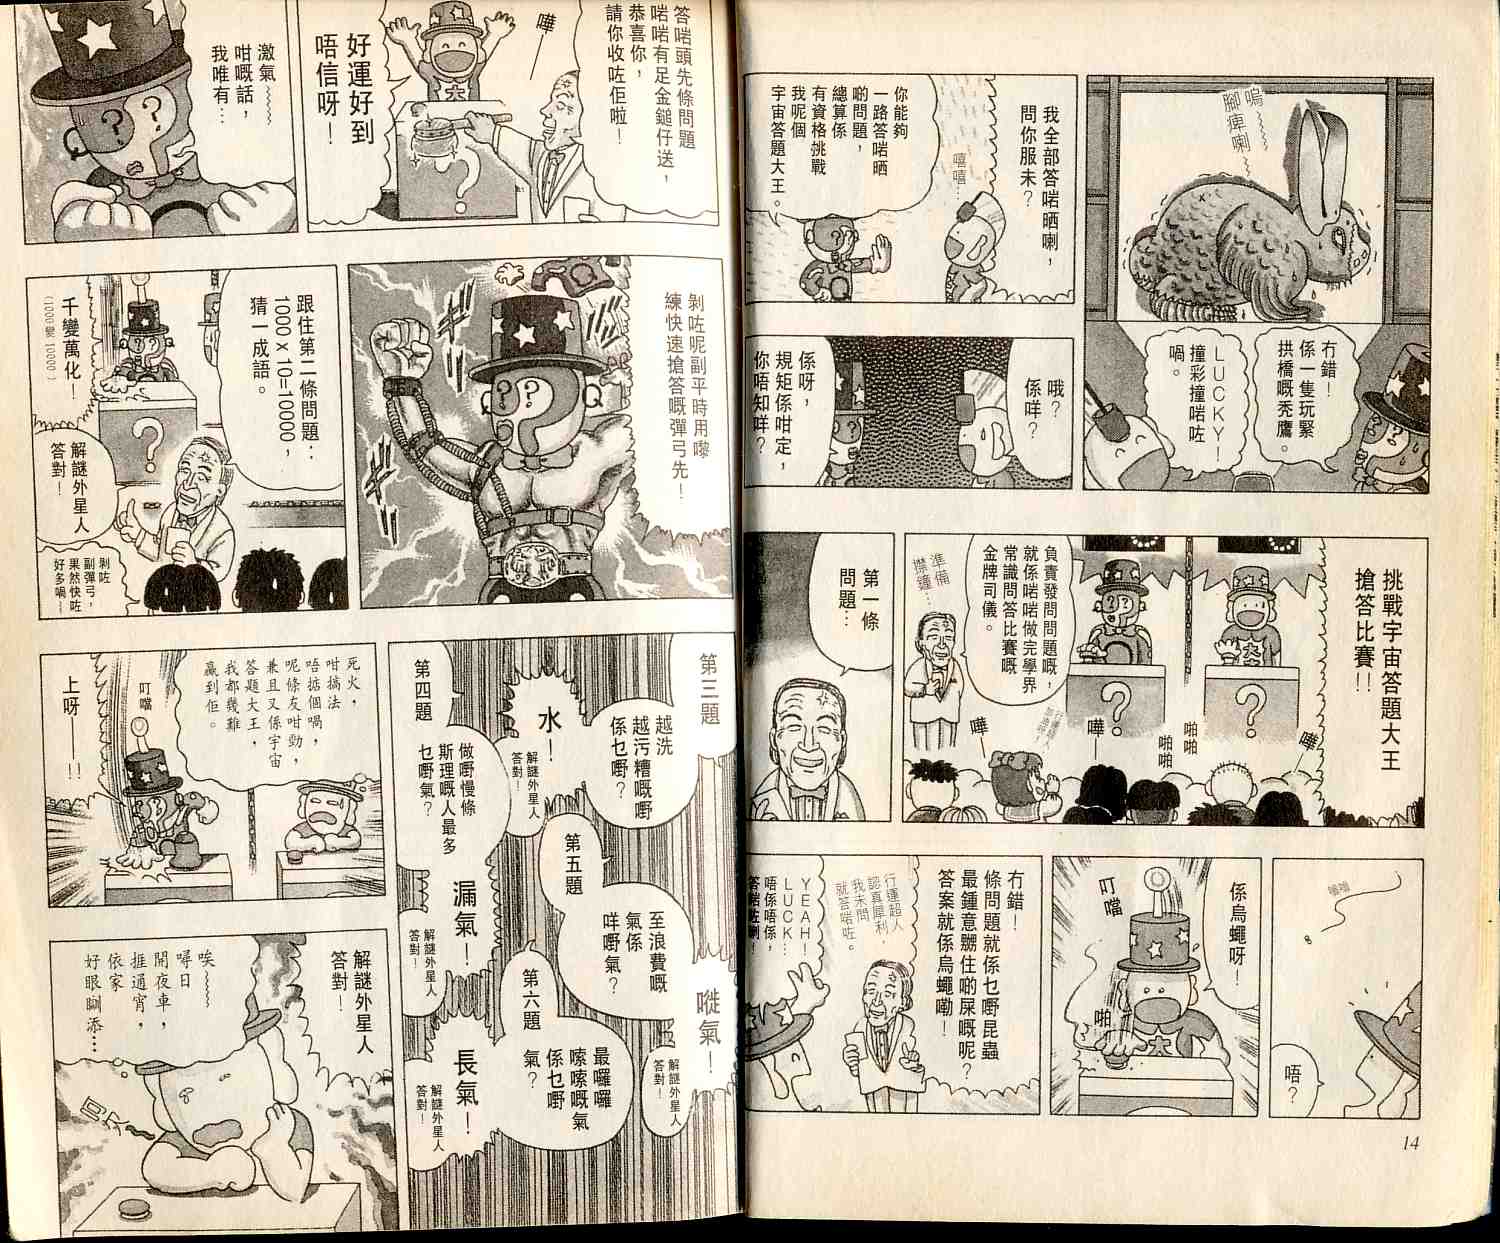 嗚
腳痺喇
冇錯！
係一隻玩緊
拱橋嘅禿鷹。
LUCKY！
撞彩撞啱咗
喎。
我全部答啱晒喇，
問你服未？
嘻嘻…
你能夠
一路答啱晒
啲問題，
總算係
有資格挑戰
我呢個
宇宙答題大王。
哦？
係咩？
係呀，
規矩係咁定，
你唔知咩？
挑戰宇宙答題大王
搶答比賽！！
嘩
啪啪
啪啪
嘩
嘩
負責發問問題嘅，
就係啱啱做完學界
常識問答比賽嘅
金牌司儀。
準備
㩒鐘…
第一條
問題…
嗡嗡
唔？
係烏蠅呀！
叮噹
啪
冇錯！
條問題就係乜嘢昆蟲
最鍾意嬲住啲屎嘅呢？
答案就係烏蠅嘞！
行運超人
認真犀利，
我未問
就答啱咗。
YEAH！
LUCK…
唔係唔係，
答啱咗喇！
14
答啱頭先條問題
啱啱有足金鎚仔送，
恭喜你，
請你收咗佢啦！
嘩
好運好到
唔信呀！
激氣
咁嘅話，
我唯有…
剝咗呢副平時用嚟
練快速搶答嘅彈弓先！
跟住第二條問題：
1000 x 10=10000，
猜一成語。
千變萬化！
（1000 變 10000）
解謎外星人
答對！
剝咗
副彈弓，
果然快咗
好多喎
第三題
越洗
越污糟嘅嘢
係乜嘢？
水！
解謎外星人
答對！
第四題
做嘢慢條
斯理嘅人最多
乜嘢氣？
漏氣！
解謎外星人
答對！
第五題
至浪費嘅
氣係
咩嘢氣？
嘥氣！
解謎外星人
答對！
第六題
最囉囉
嗦嗦嘅氣
係乜嘢
氣？
長氣！
解謎外星人
答對！
死火，
咁搞法
唔掂個喎，
呢條友咁勁，
兼且又係宇宙
答題大王，
我都幾難
贏到佢。
叮噹
上呀——！！
解謎外星人
答對！
唉
噚日
開夜車，
捱通宵，
依家
好眼瞓添…